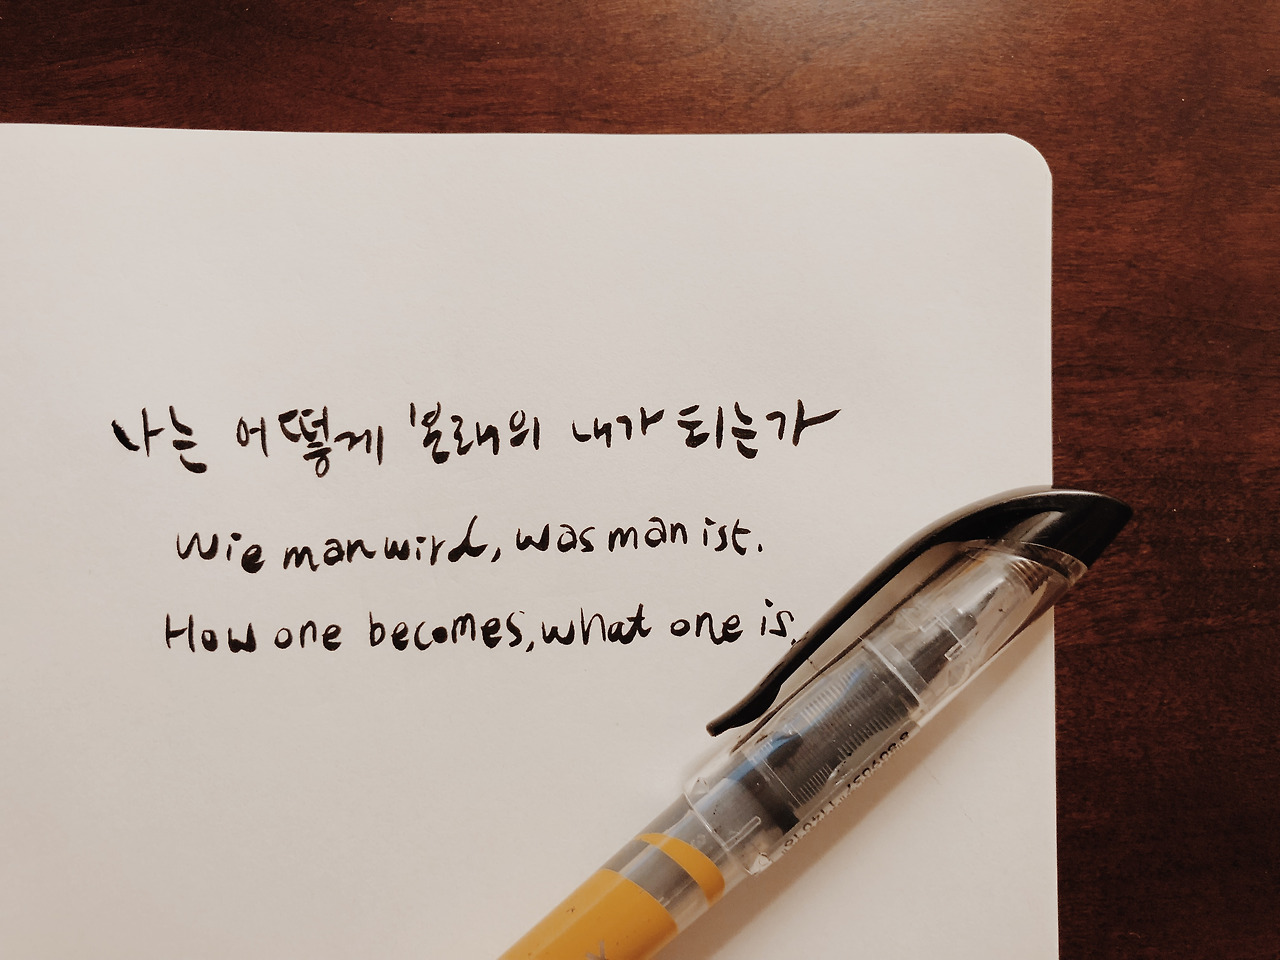 나는 어떻게 본래의 내가 되는가
Wie man wird, was man ist.
How one becomes, what one is.